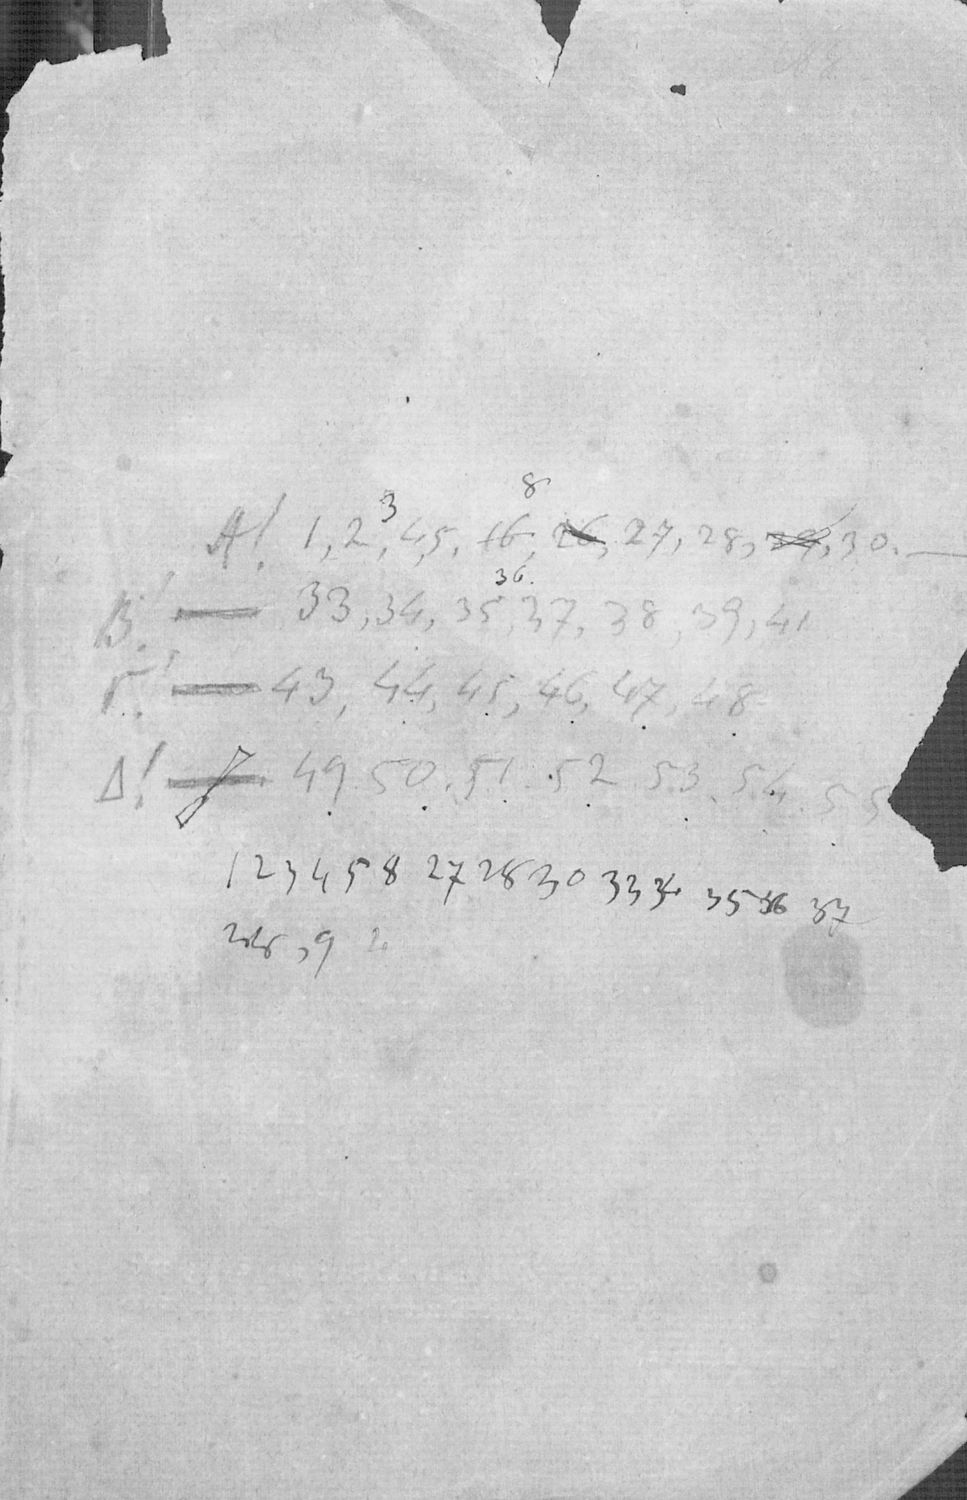 8
3
Α! 1, 2, 4, 5, 16, 26, 27, 28, 29, 30. —
36.
Β! — 33, 34, 35, 37, 38, 39, 41
Γ! — 43, 44, 45, 46, 47, 48
Δ! — 49 50. 51. 52 53. 54. 55
1 2 3 4 5 8 27 28 30 33 34 35 36 37